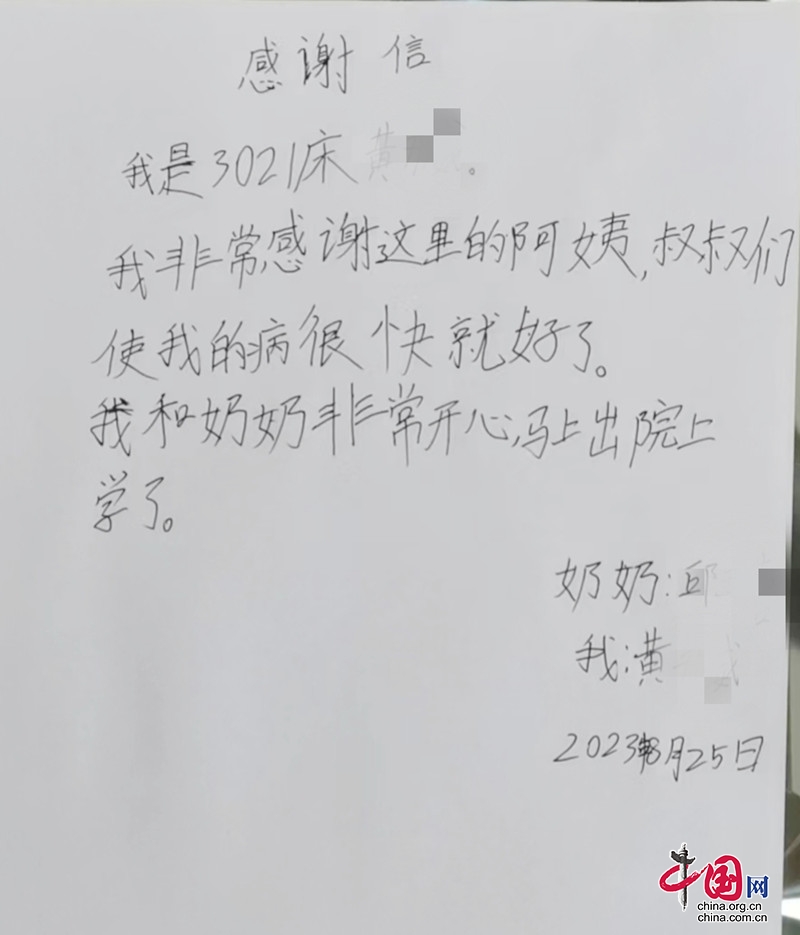 感谢信
我是3021床黄
我非常感谢这里的阿姨,叔叔们
使我的病很快就好了。
我和奶奶非常开心,马上出院上
学了。
奶奶:邱
我:黄
2023年8月25日
中国网
china.org.cn
china.com.cn